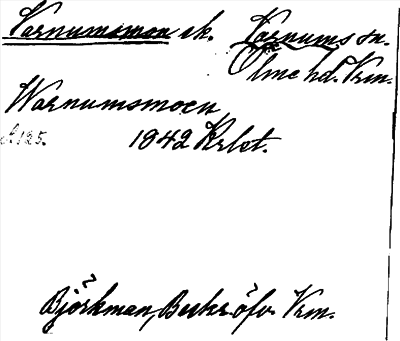 Varnumsmon ek. Varnums sn.
Ölme hd. Vrm.
Warnumsmoen
1842 Krlst.
Björkman, Beskr. öfv. Vrm.